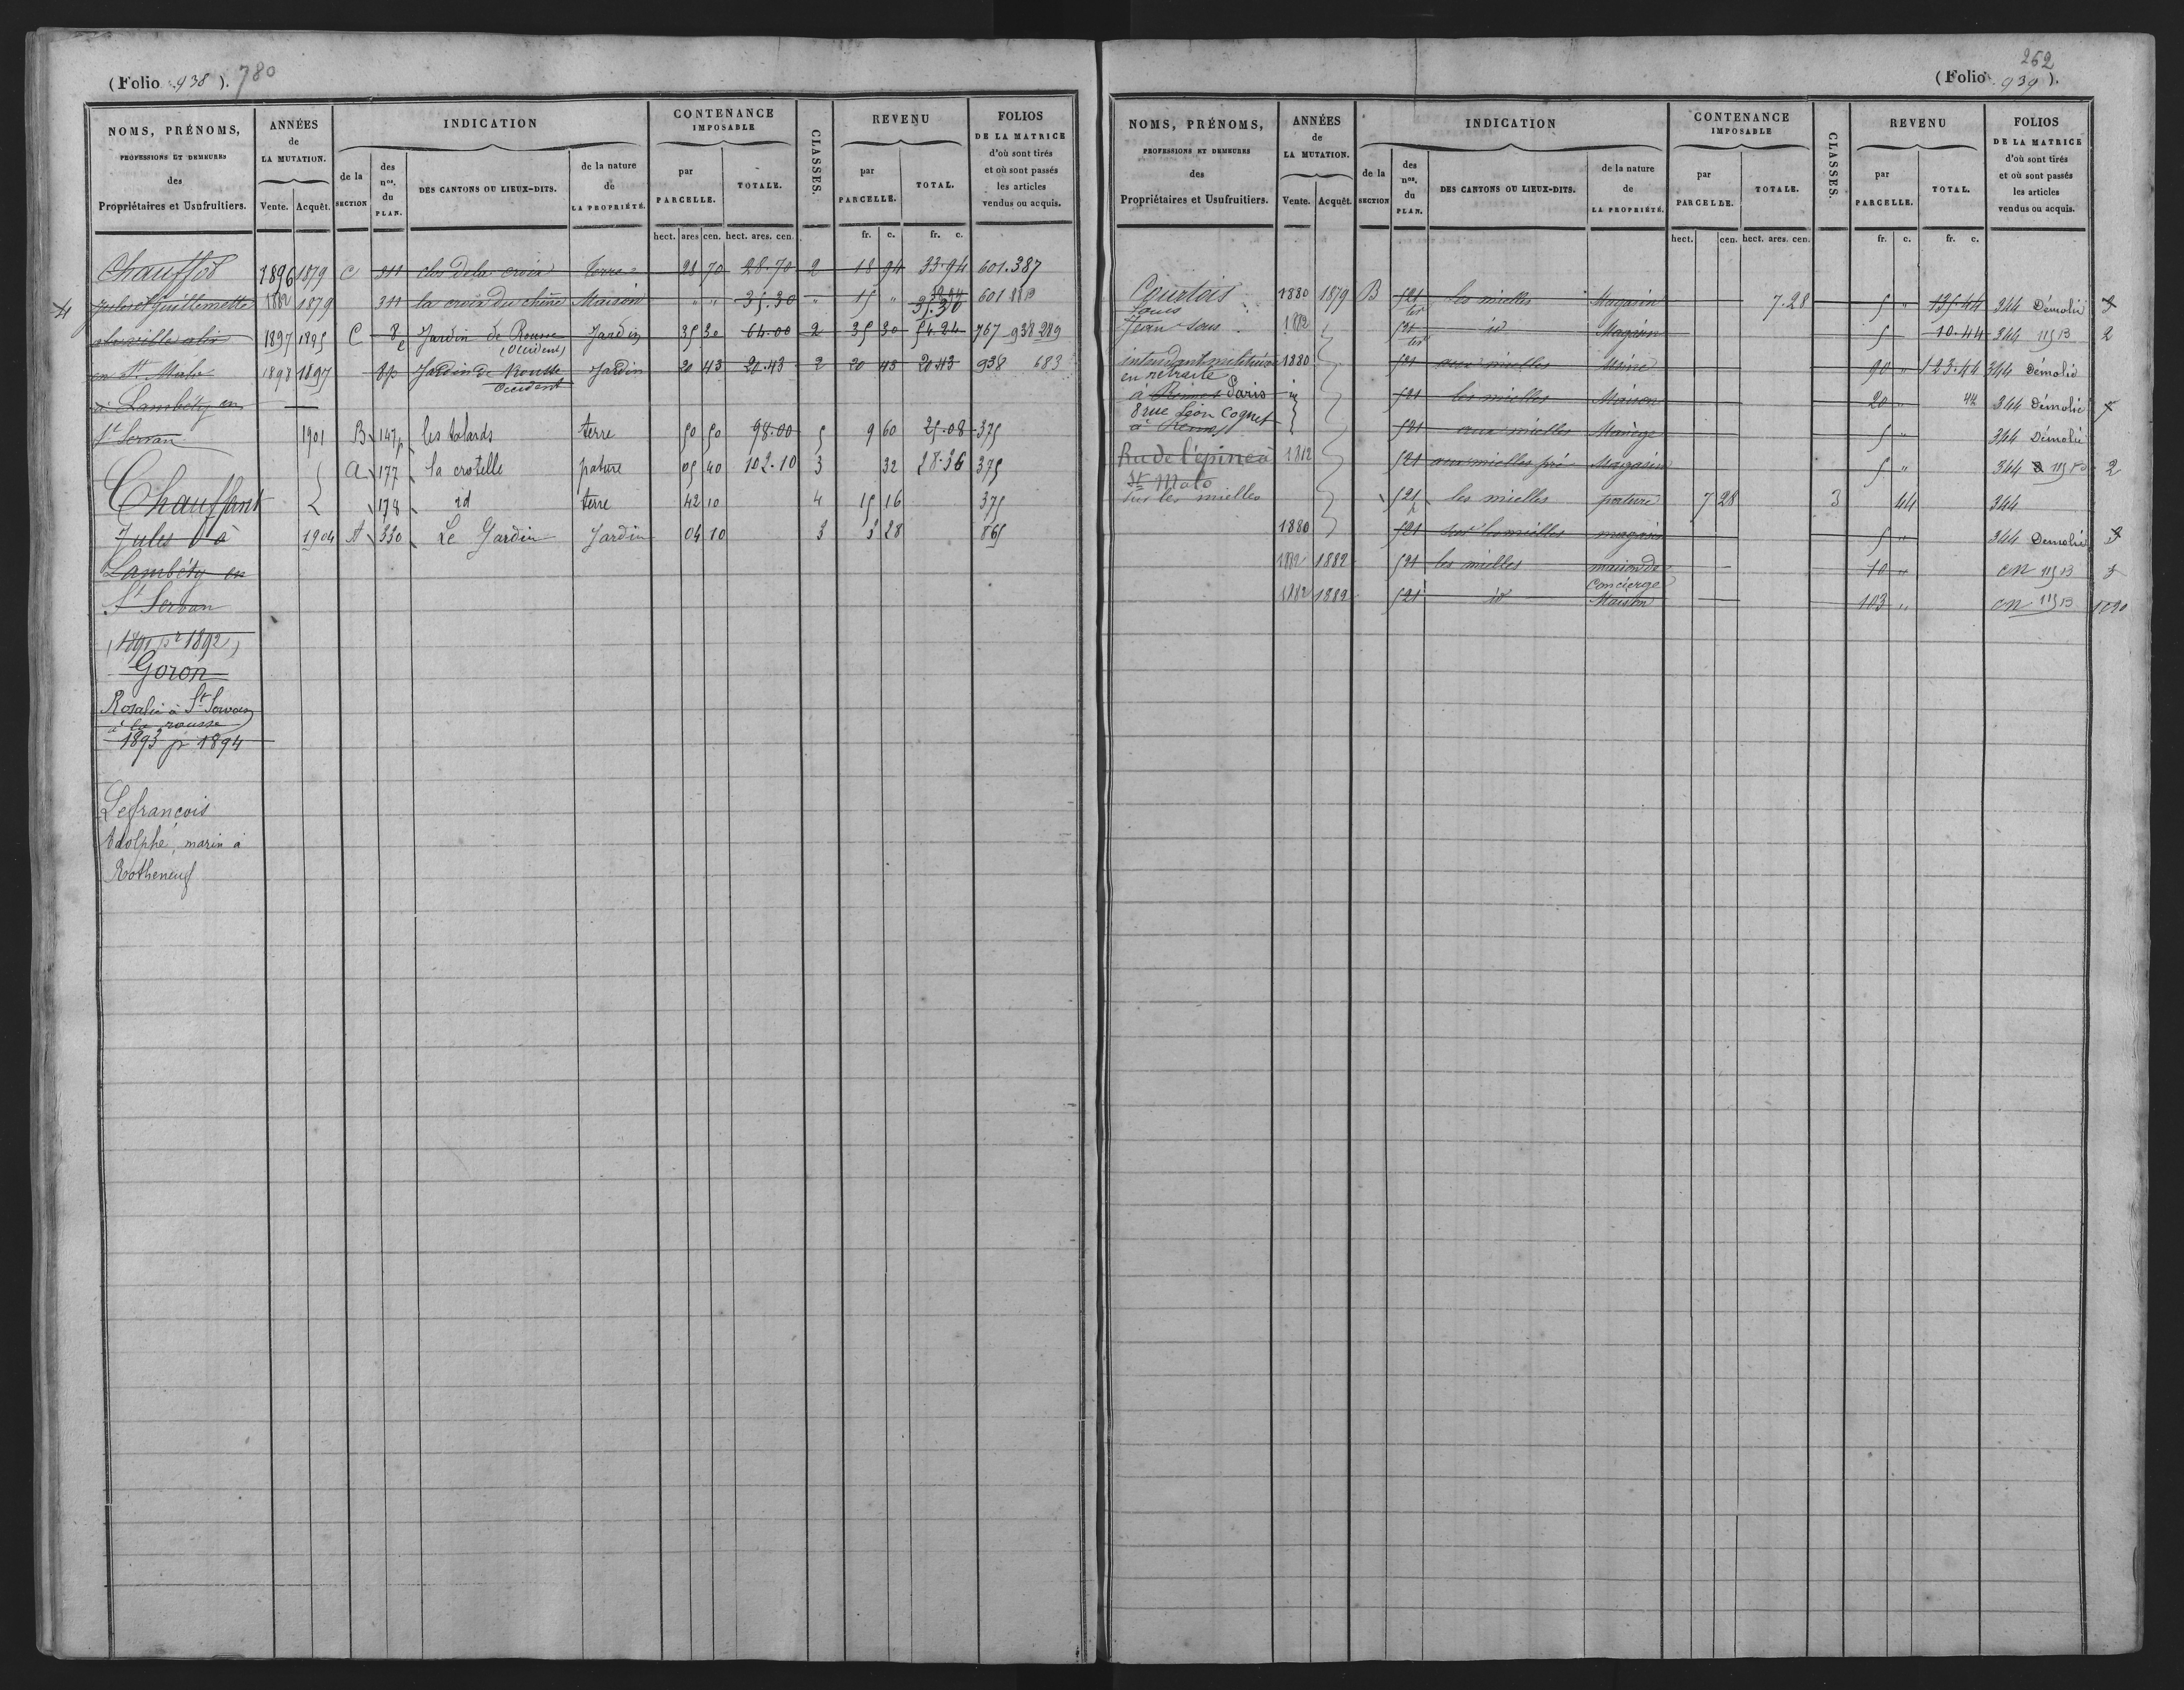 (Folio 938). 780
NOMS, PRÉNOMS, PROFESSIONS ET DEMEURES des Propriétaires et Usufruitiers.
ANNÉES de LA MUTATION. Vente. Acquêt.
INDICATION de la SECTION des nos. du PLAN. DES CANTONS OU LIEUX-DITS. de la nature de LA PROPRIÉTÉ.
CONTENANCE IMPOSABLE par PARCELLE. TOTALE.
CLASSES.
REVENU par PARCELLE. TOTAL.
FOLIOS DE LA MATRICE d'où sont tirés et où sont passés les articles vendus ou acquis.
hect. ares cen. hect. ares. cen. fr. c. fr. c.
1896 1879 C 311 clos de la croix terre 28 70 28.70 2 18 94 33.94 601.387
Jules et Guillemette 1882 1879 311 la croix du chêne Maison " " 35.30 " 15 " 35.30 601
1897 1895 C 8 Jardin de Rousse Occident Jardin 35 30 64.00 2 35 30 54.24 767 938 289
en St. Malo 1898 1897 8p Jardin de Rousse Occident Jardin 20 43 20.43 2 20 43 20.43 938 683
à Lambéty en
St Servan 1901 B 147p les talards terre 50 50 98.00 5 9 60 25.08 375
A 177 la crotelle pature 05 40 102.10 3 32 28.36 375
Chauffant 178 id terre 42 10 4 15 16 375
Jules à 1904 A 330 Le Jardin Jardin 04 10 3 3 28 865
Lambéty en
St Servan
(1891 pr 1892)
Goron
Rosalie à St Servan
à la rousse
1893 pr 1894
Lefrançois
Adolphe, marin à
Rotheneuf
262
(Folio 939).
NOMS, PRÉNOMS, PROFESSIONS ET DEMEURES des Propriétaires et Usufruitiers.
ANNÉES de LA MUTATION. Vente. Acquêt.
INDICATION de la SECTION des nos. du PLAN. DES CANTONS OU LIEUX-DITS. de la nature de LA PROPRIÉTÉ.
CONTENANCE IMPOSABLE par PARCELLE. TOTALE.
CLASSES.
REVENU par PARCELLE. TOTAL.
FOLIOS DE LA MATRICE d'où sont tirés et où sont passés les articles vendus ou acquis.
hect. cen. hect. ares. cen. fr. c. fr. c.
Courtois 1880 1879 B 521 les mielles Magasin 7.28 5 " 135.44 344 Démolie
Louis
Jean 1882 521 id Magasin 5 10.44 344 115 B 2
intendant militaire 1880 521 aux mielles 90 " 123.44 344 Démolie
en retraite
à Rennes Paris 521 les mielles Maison 20 " 44 344 Démolie
8 rue Léon Cognet
à Rennes 521 aux mielles Manège 5 " 344 Démolie
Rue de l'épine à 1882 521 aux mielles Magasin 5 " 344 2
St Malo
sur les mielles 521p les mielles pature 7 28 3 44 344
1880 521 les mielles magasin 5 " 344 Demolie
1882 1882 521 les mielles maison de concierge 10 " CN 115 B
1882 1882 521 id Maison 103 " CN 115 B